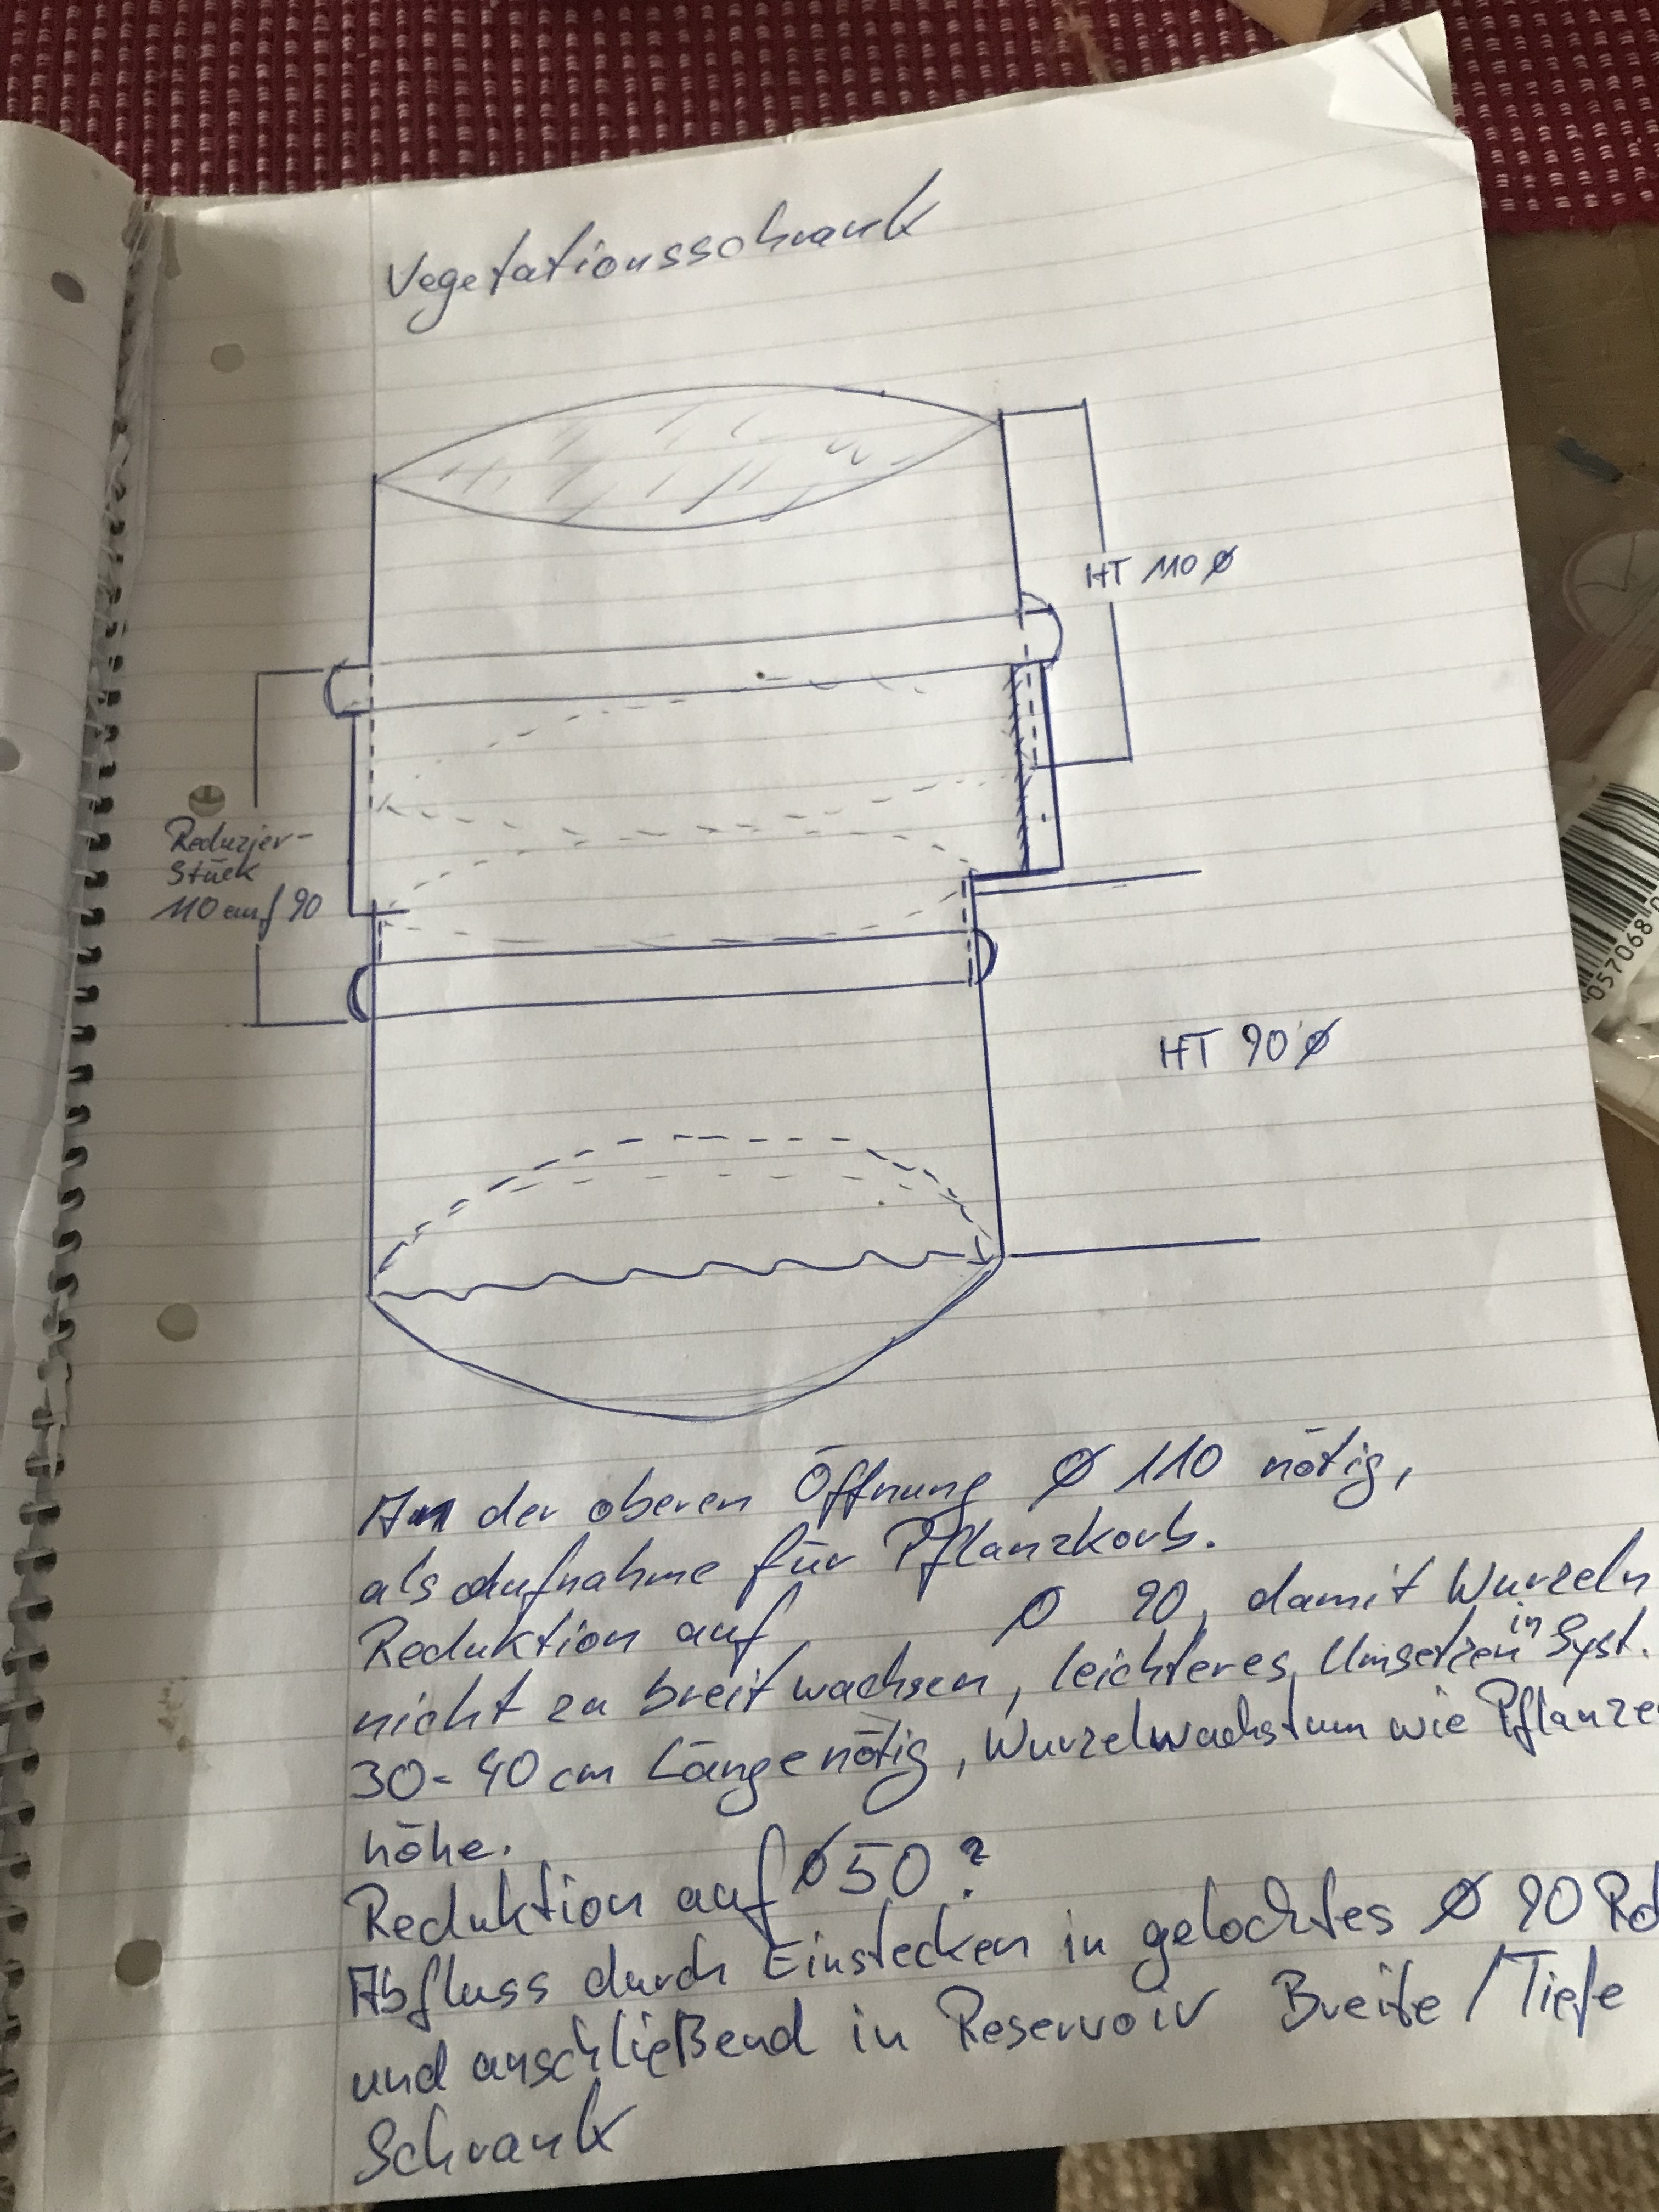 Vegetationsschrank
HT 110 Ø
Reduzier-
Stück
110 auf 90
HT 90 Ø
An der oberen Öffnung Ø 110 nötig,
als Aufnahme für Pflanzkorb.
Reduktion auf Ø 90, damit Wurzeln
nicht zu breit wachsen, leichteres Umsetzen in Syst.
30-40 cm Länge nötig, Wurzelwachstum wie Pflanze
höhe.
Reduktion auf Ø50?
Abfluss durch Einstecken in gelochtes Ø 90 Ro
und anschließend in Reservoir Breite / Tiefe
Schrank
057068